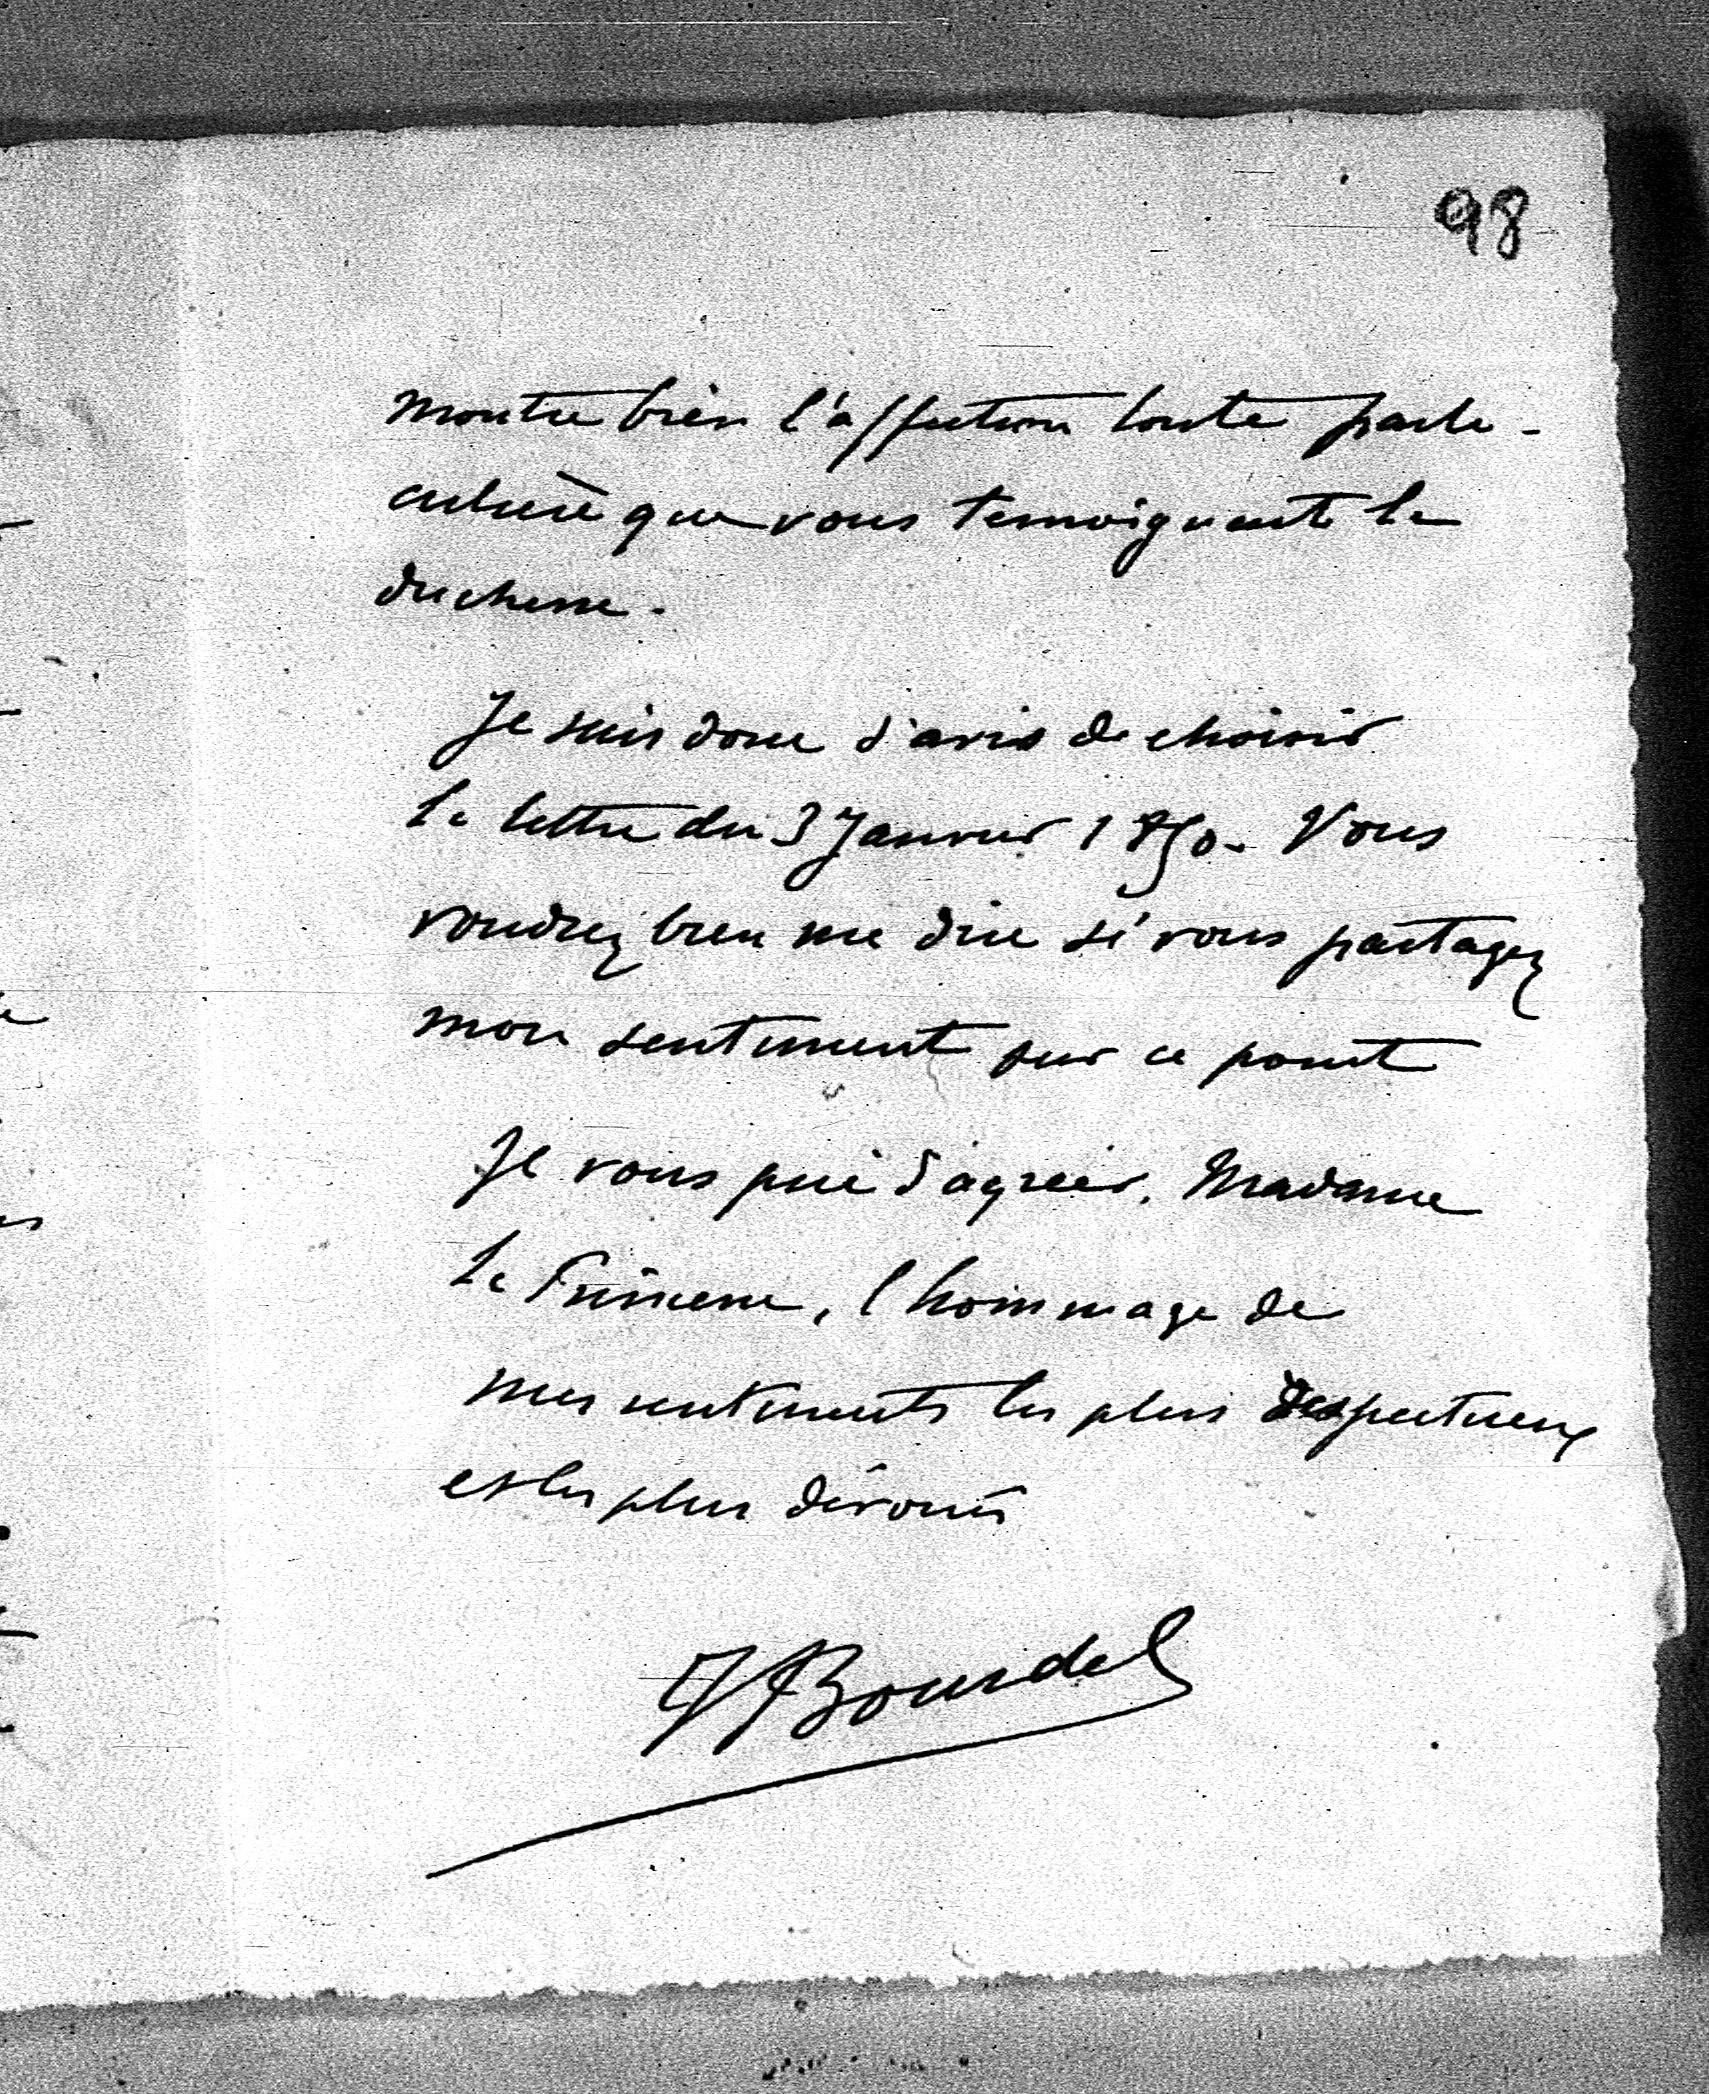 98
montre bien l'affection toute parti-
culière que vous temoignait la
duchesse.
Je suis donc d'avis de choisir
la lettre du 3 Janvier 1850. Vous
voudrez bien me dire si vous partagez
mon sentiment sur ce point
Je vous prie d'agréer, Madame
la Princesse, l'hommage de
mes sentiments les plus respectueux
et les plus dévoués
J Bourdel